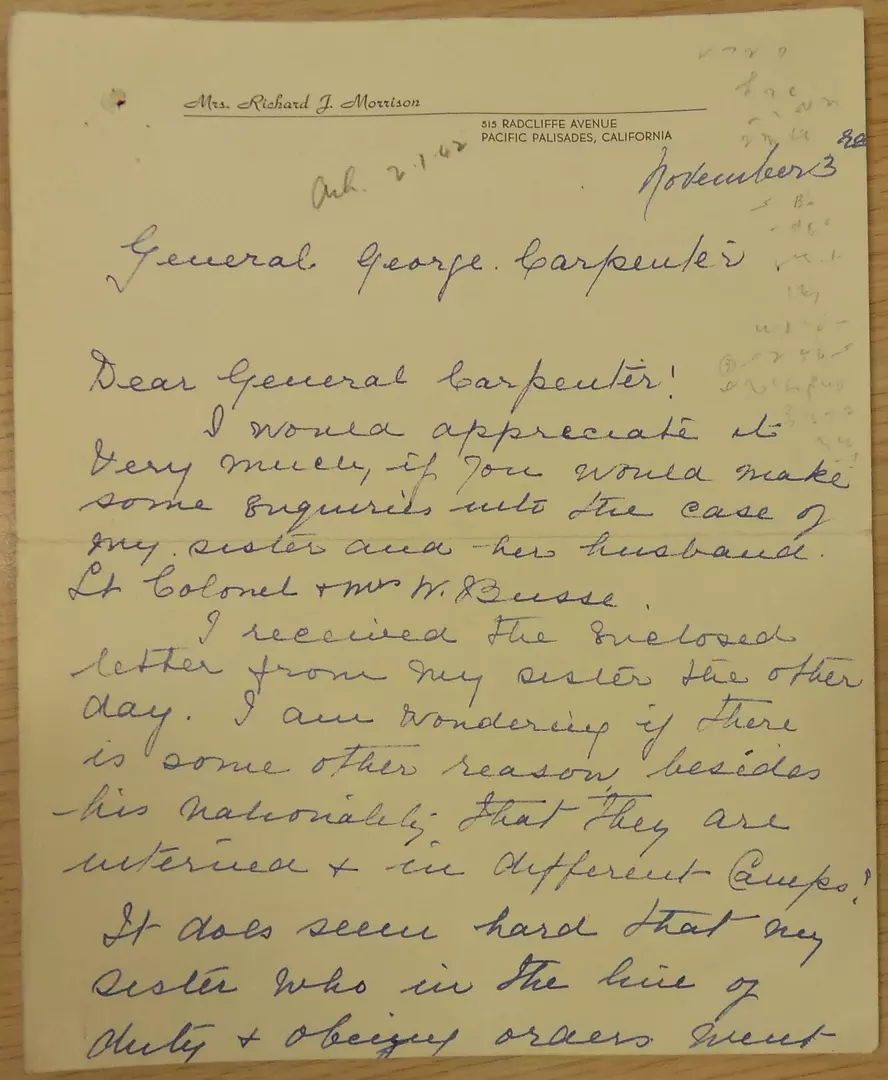 Mrs. Richard J. Morrison
515 RADCLIFFE AVENUE
PACIFIC PALISADES, CALIFORNIA
Ack. 2.1.42
November 3rd
General George Carpenter.
Dear General Carpenter!
I would appreciate it
very much, if you would make
some enquiries into the case of
my sister and her husband.
Lt Colonel & Mrs W. Busse.
I received the enclosed
letter from my sister the other
day. I am wondering if there
is some other reason, besides
his nationality, that they are
interned & in different Camps?
It does seem hard that my
sister who in the line of
duty & obeying orders went